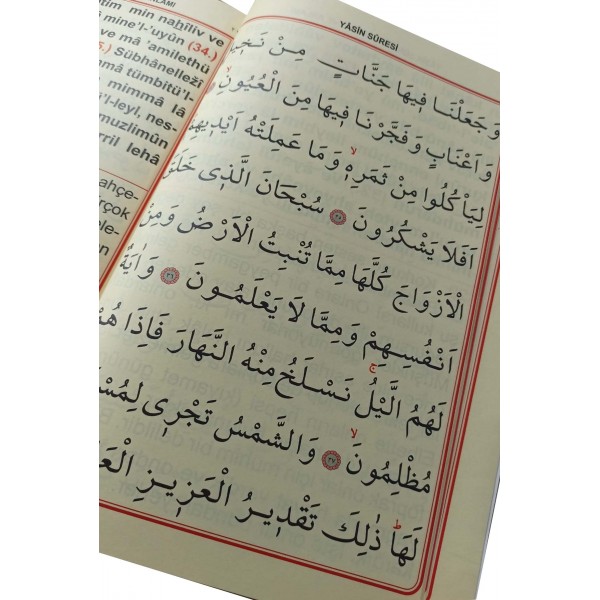 tim min naḫîliv ve
mine'l-'uyûn (34.)
ve mâ 'amilethü
5.) Sübhânellezî
mmâ tümbitü'l-
mimmâ lâ
'l-leyl, nes-
muzlimûn
rril lehâ
ahçe-
rçok
ele-
YÂSÎN SÛRESİ
وَجَعَلْنَا فٖيهَا جَنَّاتٍ مِنْ
وَاَعْنَابٍ وَفَجَّرْنَا فٖيهَا مِنَ الْعُيُونِ
لِيَاْكُلُوا مِنْ ثَمَرِهٖۙ وَمَا عَمِلَتْهُ اَيْدٖيهِمْ
اَفَلَا يَشْكُرُونَ ٣٥ سُبْحَانَ الَّذٖى خَلَقَ
الْاَزْوَاجَ كُلَّهَا مِمَّا تُنْبِتُ الْاَرْضُ وَمِنْ
اَنْفُسِهِمْ وَمِمَّا لَا يَعْلَمُونَ ٣٦ وَاٰيَةٌ
لَهُمُ الَّيْلُۚ نَسْلَخُ مِنْهُ النَّهَارَ فَاِذَا هُمْ
مُظْلِمُونَۙ ٣٧ وَالشَّمْسُ تَجْرٖى
لَهَاؕ ذٰلِكَ تَقْدٖيرُ الْعَزٖيزِ